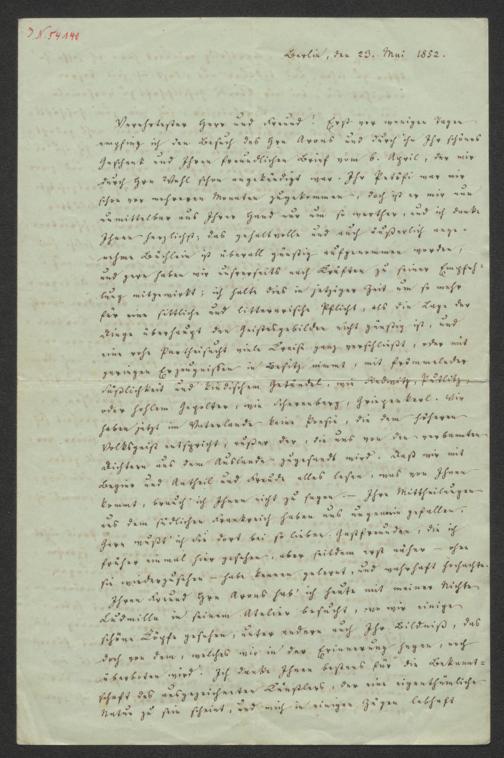 J.N. 54148
Berlin, den 23. Mai 1852.
Verehrtester Herr und Freund! Erst vor wenigen Tagen
empfing ich den Besuch des Hrn Arons und durch ihn Ihr schönes
Geschenk und Ihren freundlichen Brief vom 6. April, der mir
durch Hrn Wehl schon angekündigt war. Ihr Petöfi war mir
schon vor mehreren Monaten zugekommen, doch ist er mir nun
unmittelbar aus Ihrer Hand nur um so werther, und ich danke
Ihnen herzlichst; das gehaltvolle und auch äußerlich ange-
nehme Büchlein ist überall günstig aufgenommen worden,
und gern haben wir unsrerseits nach Kräften zu seiner Empfeh-
lung mitgewirkt; ich halte dies in jetziger Zeit um so mehr
für eine sittliche und litterarische Pflicht, als die Lage der
Dinge überhaupt den Geistesgebilden nicht günstig ist, und
eine rohe Partheisucht viele Kreise ganz verschließt, oder mit
geringen Erzeugnissen in Besitz nimmt, mit frömmelnder
Süßlichkeit und kindischem Getändel, wie Redwitz, Putlitz,
oder hohlem Gepolter, wie Scherenberg, Griepenkerl. Wir
haben jetzt im Vaterlande keine Poesie, die dem höheren
Volksgeist entspricht, außer der, die uns von den verbannten
Dichtern aus dem Auslande zugesandt wird. Daß wir mit
Begier und Antheil und Freude alles lesen, was von Ihnen
kommt, brauch' ich Ihnen nicht zu sagen. — Ihre Mittheilungen
aus dem südlichen Frankreich haben uns ungemein gefallen.
Gern wußt' ich Sie dort bei so lieben Gastfreunden, die ich
früher einmal hier gesehen, aber seitdem erst näher — ohne
sie wiederzusehen — habe kennen gelernt, und wahrhaft hochachte.
Ihren Freund Hrn Arons hab' ich heute mit meiner Nichte
Ludmilla in seinem Atelier besucht, wo wir einige
schöne Köpfe gesehen, unter andern auch Ihr Bildniß, das
doch von dem, welches wir in der Erinnerung hegen, noch
überboten wird. Ich danke Ihnen bestens für die Bekannt-
schaft des ausgezeichneten Künstlers, der eine eigenthümliche
Natur zu sein scheint, und mich in einigen Zügen lebhaft